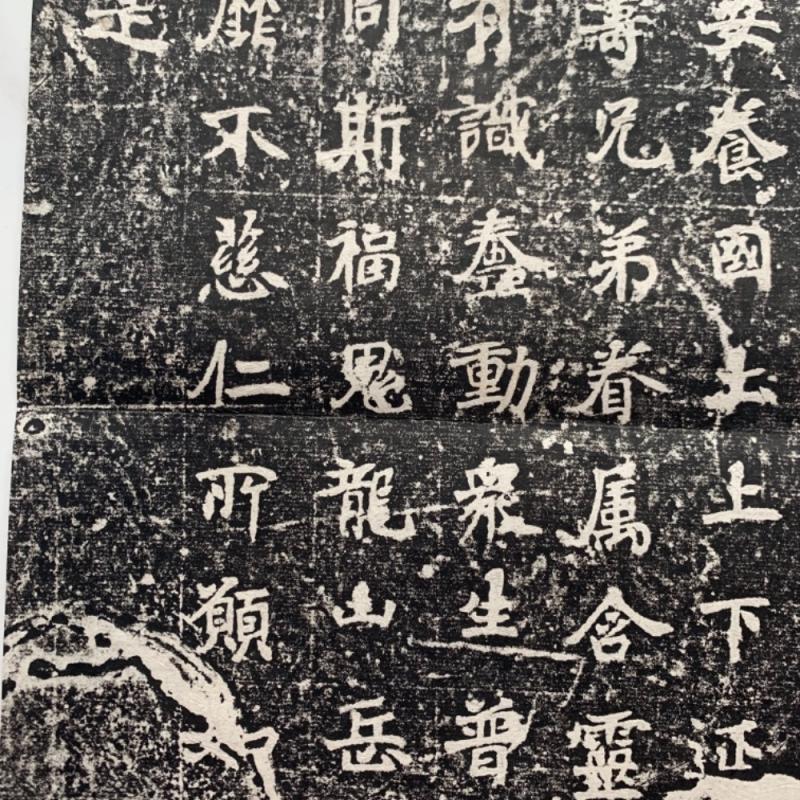 安養國土上下延
壽兄弟眷属含靈
有識蠢動衆生普
同斯福鬼龍山岳
靡不慈仁所願如
是